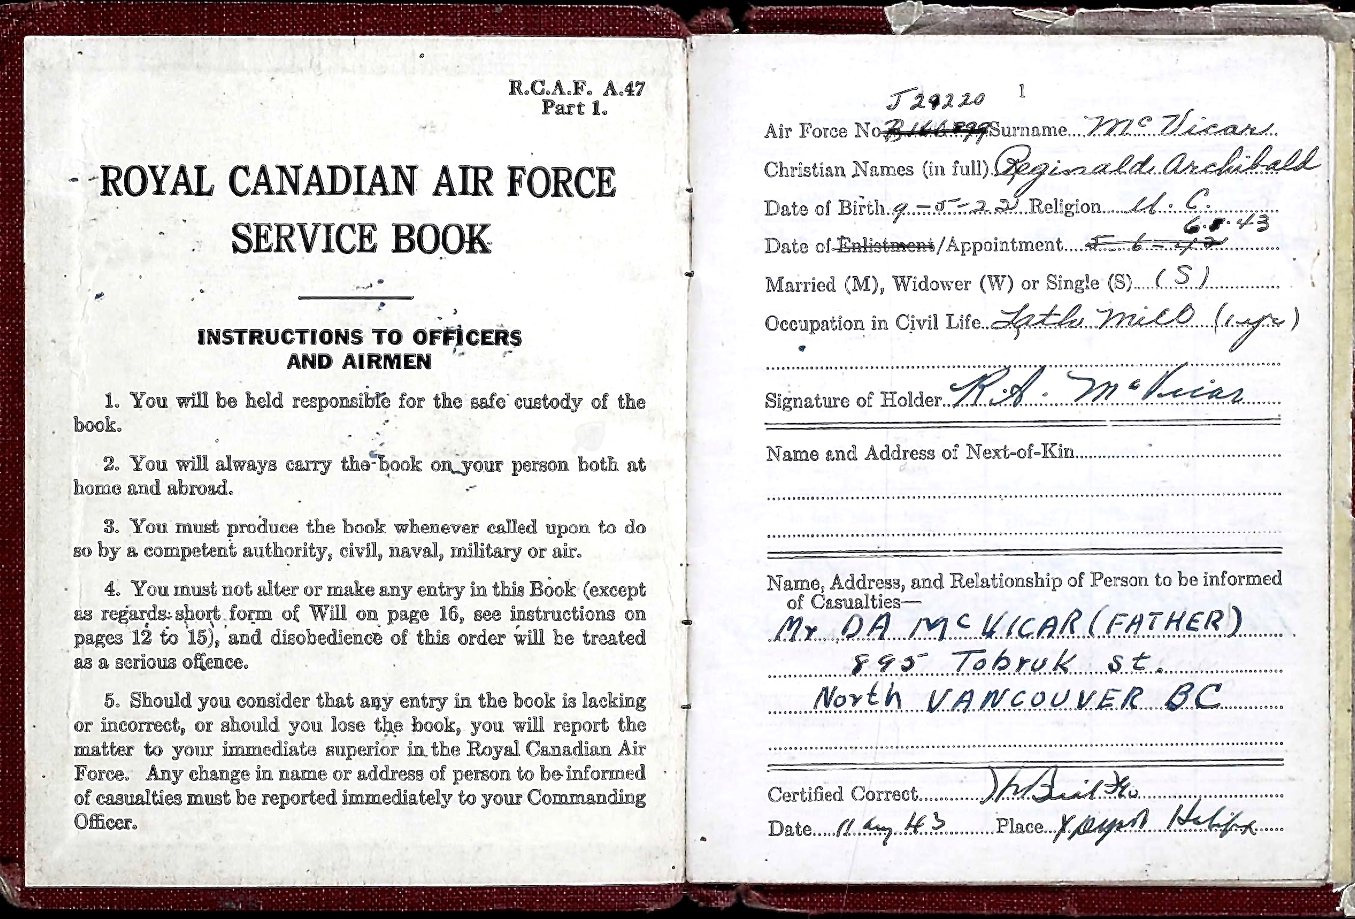 R.C.A.F. A.47
Part 1.
ROYAL CANADIAN AIR FORCE
SERVICE BOOK
INSTRUCTIONS TO OFFICERS
AND AIRMEN
1. You will be held responsible for the safe custody of the
book.
2. You will always carry the book on your person both at
home and abroad.
3. You must produce the book whenever called upon to do
so by a competent authority, civil, naval, military or air.
4. You must not alter or make any entry in this Book (except
as regards short form of Will on page 16, see instructions on
pages 12 to 15), and disobedience of this order will be treated
as a serious offence.
5. Should you consider that any entry in the book is lacking
or incorrect, or should you lose the book, you will report the
matter to your immediate superior in the Royal Canadian Air
Force. Any change in name or address of person to be informed
of casualties must be reported immediately to your Commanding
Officer.
1
J29220
Air Force No. Surname McVicar
Christian Names (in full) Reginald Archibald
Date of Birth 9-5-22 Religion U.C.
43
Date of Enlistment/Appointment 5-6-42
Married (M), Widower (W) or Single (S) (S)
Occupation in Civil Life Lath Mill (1 yr)
Signature of Holder R.A. McVicar
Name and Address of Next-of-Kin
Name, Address, and Relationship of Person to be informed
of Casualties—
Mr DA McVICAR (FATHER)
895 Tobruk st.
North VANCOUVER BC
Certified Correct
Date 11 Aug 43 Place Halifax